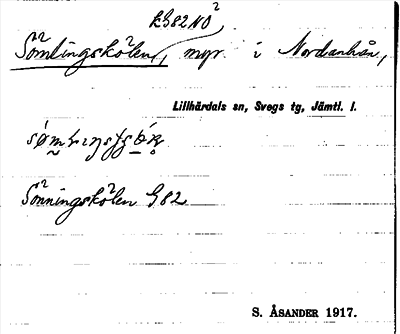 kG82NO²
Sömlingskölen, myr i Nordanhån,
Lillhärdals sn, Svegs tg, Jämtl. l.
Sönningskölen G82
S. ÅSANDER 1917.